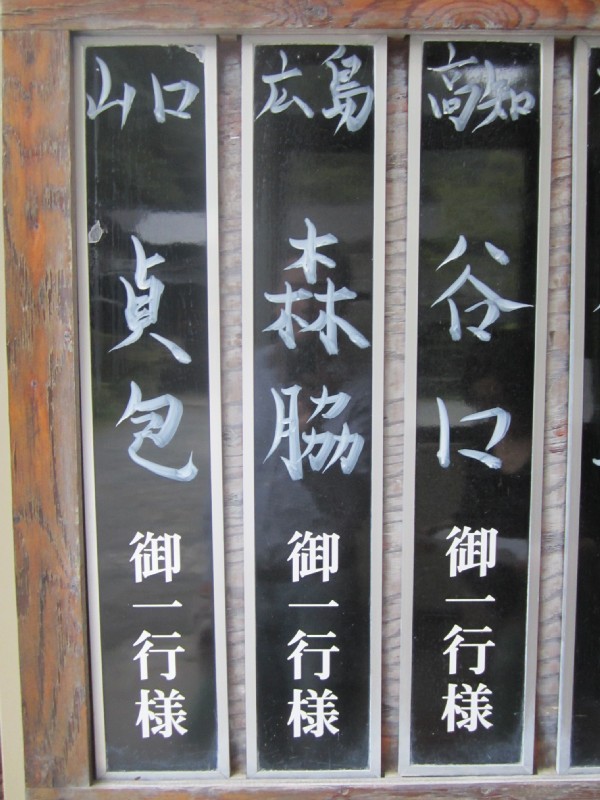 高知 谷口 御一行様
広島 森脇 御一行様
山口 貞包 御一行様